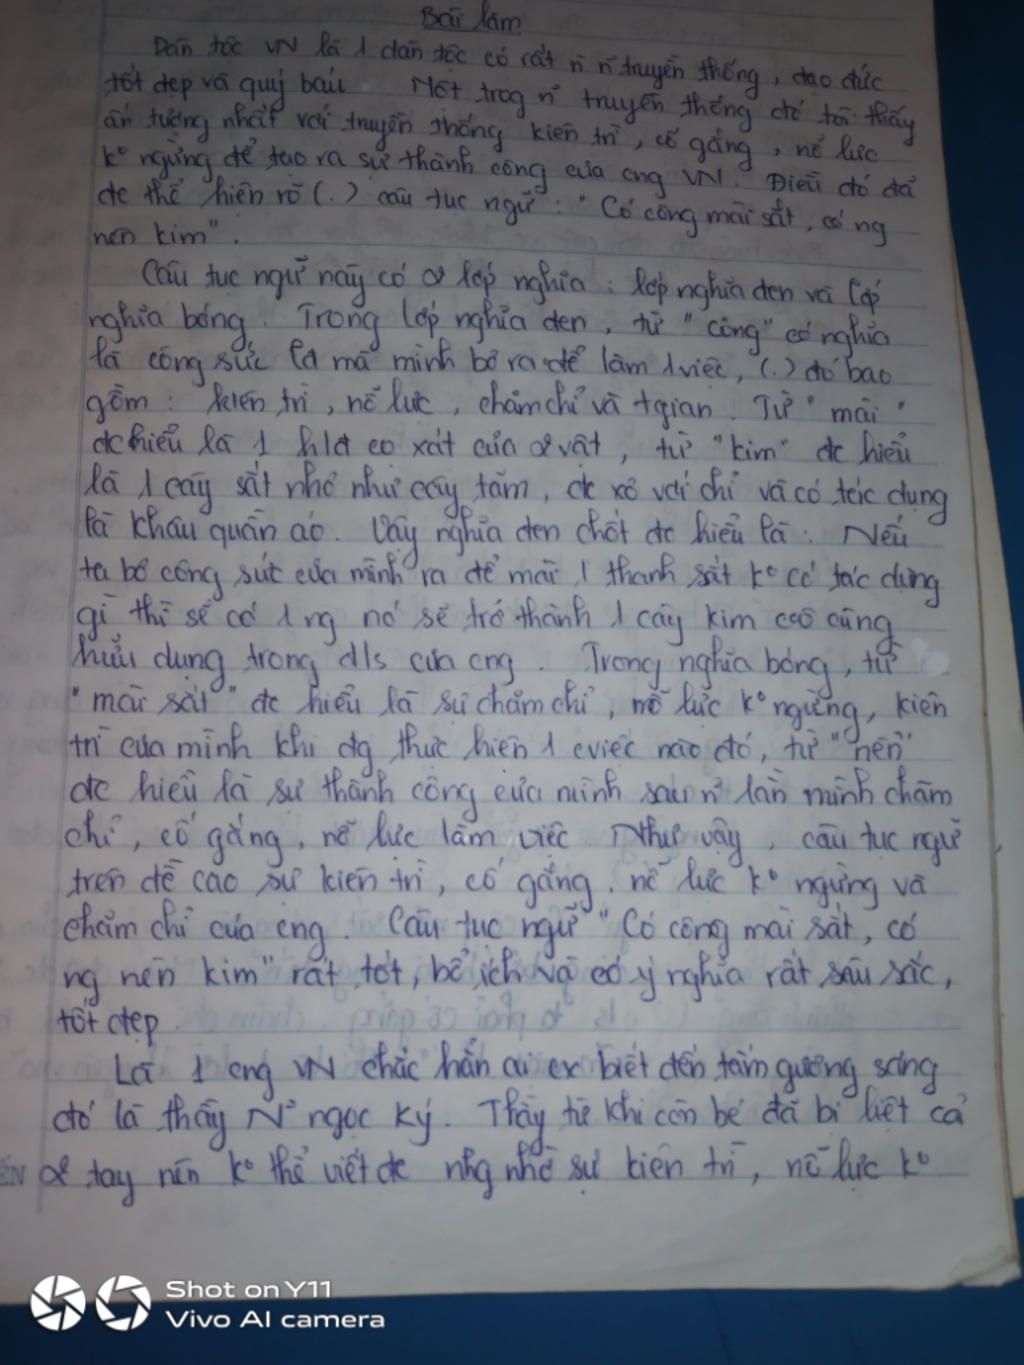 Bài làm
Dân tộc VN là 1 dân tộc có rất n̄ n~ truyền thống, đạo đức
tốt đẹp và quý báu. Một trog n~ truyền thống đó tôi thấy
ấn tượng nhất với truyền thống kiên trì, cố gắng, nỗ lực
k° ngừng để tạo ra sự thành công của cng VN. Điều đó đã
đc thể hiện rõ (.) câu tục ngữ: "Có công mài sắt, có ng
nên kim".
Câu tục ngữ này có 2 lớp nghĩa: lớp nghĩa đen và lớp
nghĩa bóng. Trong lớp nghĩa đen, từ "công" có nghĩa
là công sức lđ mà mình bỏ ra để làm 1 việc, (.) đó bao
gồm: kiên trì, nỗ lực, chăm chỉ và tgian. Từ "mài"
đc hiểu là 1 hđ cọ xát của 2 vật, từ "kim" đc hiểu
là 1 cây sắt nhỏ như cây tăm, đc xỏ với chỉ và có tác dụng
là khâu quần áo. Vậy nghĩa đen chốt đc hiểu là: Nếu
ta bỏ công sức của mình ra để mài 1 thanh sắt k° có tác dụng
gì thì sẽ có 1 ng nó sẽ trở thành 1 cây kim vô cùng
hữu dụng trong đ/s của cng. Trong nghĩa bóng, từ
"mài sắt" đc hiểu là sự chăm chỉ, nỗ lực k° ngừng, kiên
trì của mình khi đg thực hiện 1 cviệc nào đó, từ "nên"
đc hiểu là sự thành công của mình sau n~ lần mình chăm
chỉ, cố gắng, nỗ lực làm việc. Như vậy, câu tục ngữ
trên đề cao sự kiên trì, cố gắng, nỗ lực k° ngừng và
chăm chỉ của cng. Câu tục ngữ "Có công mài sắt, có
ng nên kim" rất tốt, bổ ích và có ý nghĩa rất sâu sắc,
tốt đẹp.
Là 1 cng VN chắc hẳn ai cx biết đến tấm gương sáng
đó là thầy N~ ngọc Ký. Thầy từ khi còn bé đã bị liệt cả
2 tay nên k° thể viết đc nhg nhờ sự kiên trì, nỗ lực k°
Shot on Y11
Vivo AI camera